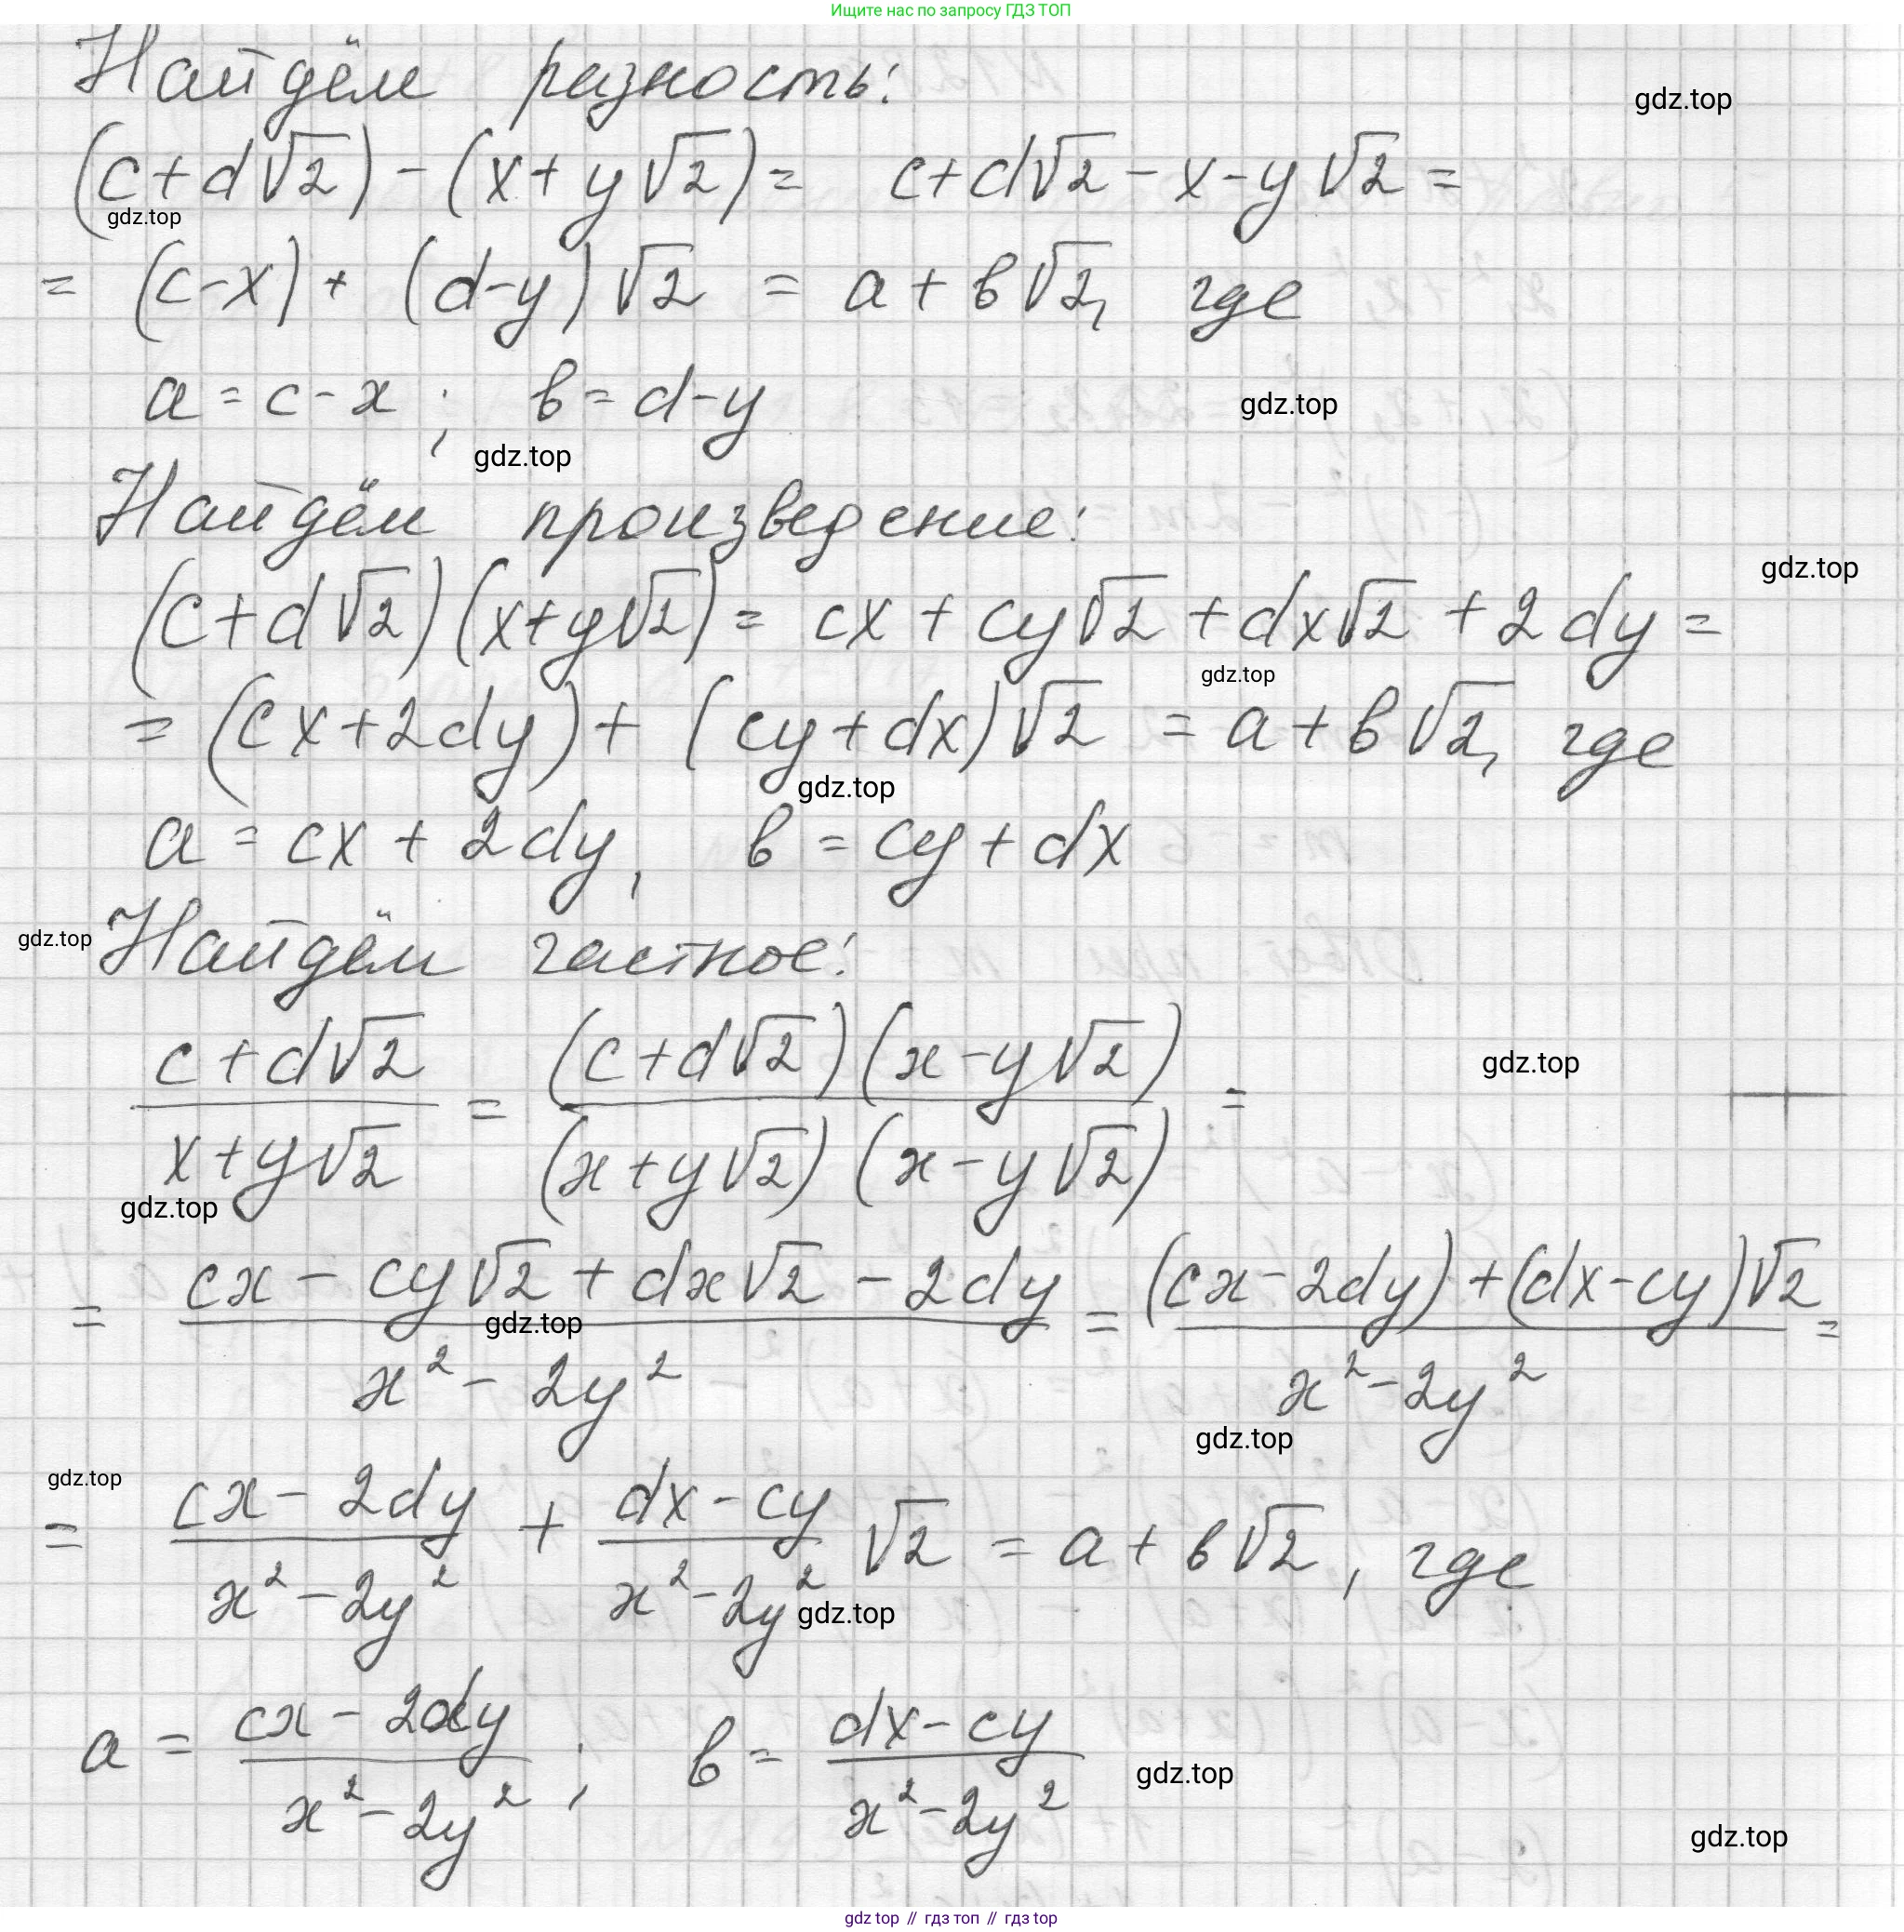 Ищите нас по запросу ГДЗ ТОП
Найдём разность:
gdz.top
(c+d√2) - (x+y√2) = c+d√2 - x - y√2 =
gdz.top
= (c-x) + (d-y)√2 = a + b√2, где
a = c - x ; b = d - y
gdz.top
gdz.top
Найдём произведение:
gdz.top
(c+d√2)(x+y√2) = cx + cy√2 + dx√2 + 2dy =
gdz.top
= (cx+2dy) + (cy+dx)√2 = a + b√2, где
gdz.top
a = cx + 2dy, b = cy + dx
gdz.top
Найдём частное:
(c+d√2)/(x+y√2) = ((c+d√2)(x-y√2))/((x+y√2)(x-y√2)) =
gdz.top
gdz.top
= (cx - cy√2 + dx√2 - 2dy)/(x² - 2y²) = ((cx-2dy)+(dx-cy)√2)/(x²-2y²) =
gdz.top
gdz.top
gdz.top
= (cx - 2dy)/(x² - 2y²) + (dx - cy)/(x² - 2y²) √2 = a + b√2, где
gdz.top
a = (cx - 2dy)/(x² - 2y²) ; b = (dx - cy)/(x² - 2y²)
gdz.top
gdz.top
gdz top // гдз топ // гдз top